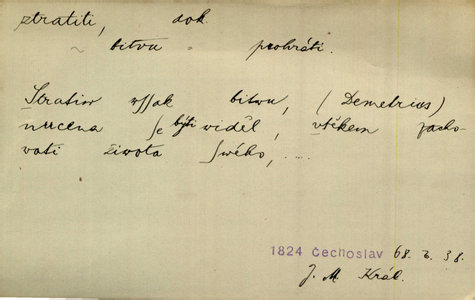 ztratiti, dok.
~ bitvu = prohráti.
Stratiw wssak bitwu, (Demetrius)
nucena se býti widěl, vtěkem zacho-
wati života swého, ....
1824 Čechoslav 68. 38.
J. M. Král.